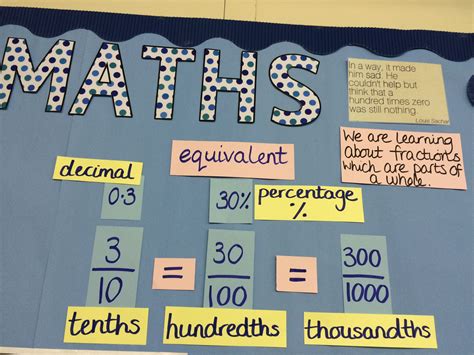 MATHS
In a way, it made
him sad. He
couldn't help but
think that a
hundred times zero
was still nothing.
Louis Sachar
We are learning
about fractions
which are parts of
a whole.
equivalent
decimal
0.3
30%
percentage
%
3/10 = 30/100 = 300/1000
tenths
hundredths
thousandths